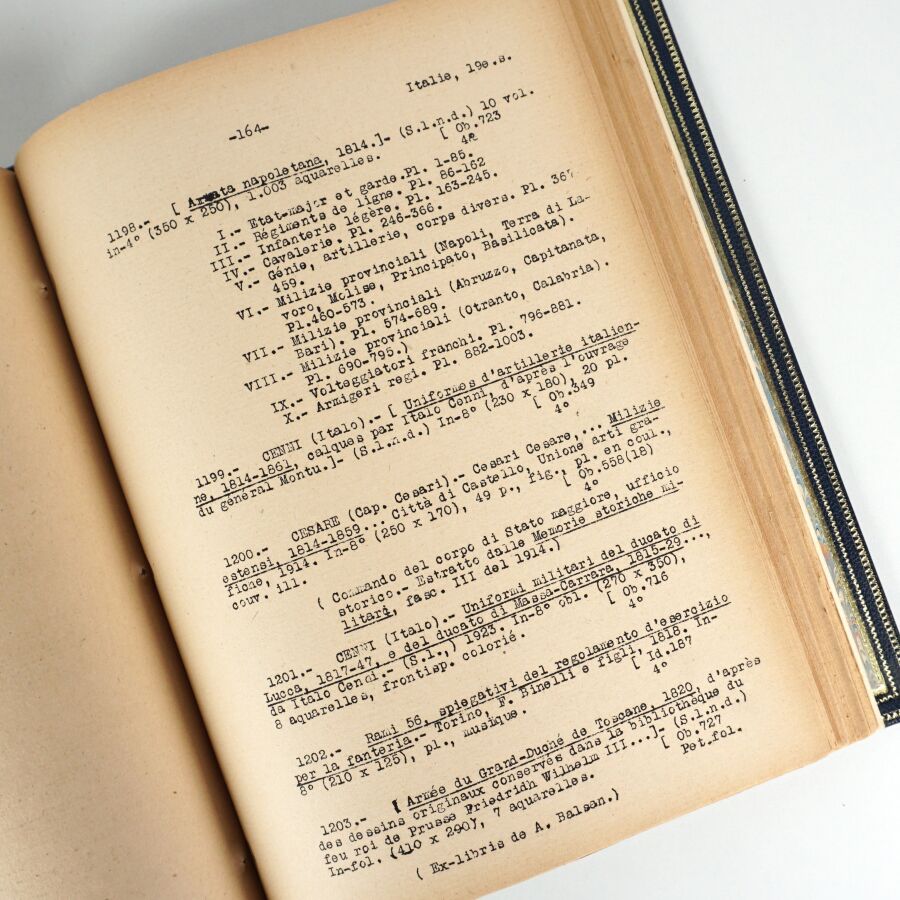 Italie, 19e.s.
-164-
1198.- [ Armata napoletana, 1814.]- (S.l.n.d.) 10 vol.
in-4° (350 x 250), 1.003 aquarelles. [ Ob.723
4°
I.- Etat-major et garde.Pl. 1-85.
II.- Régiments de ligne. Pl. 86-162
III.- Infanterie légère. Pl. 163-245.
IV.- Cavalerie. Pl. 246-366.
V.- Génie, artillerie, corps divers. Pl. 367
459.
VI.- Milizie provinciali (Napoli, Terra di La-
voro, Molise, Principato, Basilicata).
Pl.460-573.
VII.- Milizie provinciali (Abruzzo, Capitanata,
Bari). Pl. 574-689.
VIII.- Milizie provinciali (Otranto, Calabria).
Pl. 690-795.)
IX.- Volteggiatori franchi. Pl. 796-881.
X.- Armigeri regi. Pl. 882-1003.
1199.- CENNI (Italo).- [ Uniformes d'artillerie italien-
ne, 1814-1861, calques par Italo Cenni, d'après l'ouvrage
du général Montu.]- (S.l.n.d.) In-8° (230 x 180), 20 pl.
[ Ob.349
4°
1200.- CESARE (Cap. Cesari).- Cesari Cesare,... Milizie
estensi, 1814-1859... Città di Castello, Unione arti gra-
fiche, 1914. In-8° (250 x 170), 49 p., fig., pl. en coul.,
couv. ill. [ Ob.558(18)
4°
( Commando del corpo di Stato maggiore, ufficio
storico.- Estratto dalle Memorie storiche mi-
litari, fasc. III del 1914.)
1201.- CENNI (Italo).- Uniformi militari del ducato di
Lucca, 1817-47, e del ducato di Massa-Carrara, 1815-29...,
da Italo Cenni.- (S.l.,) 1923. In-8° obl. (270 x 350),
8 aquarelles, frontisp. colorié. [ Ob.716
4°
1202.- Rami 56, spiegativi del regolamento d'esercizio
per la fanteria.- Torino, F. Binelli e figli, 1818. In-
8° (210 x 125), pl., musique. [ Id.187
4°
1203.- [ Armée du Grand-Duché de Toscane, 1820, d'après
des dessins originaux conservés dans la bibliothèque du
feu roi de Prusse Friedridh Wilhelm III...]- (S.l.n.d.)
In-fol. (410 x 290), 7 aquarelles. [ Ob.727
Pet.fol.
( Ex-libris de A. Balsan.)